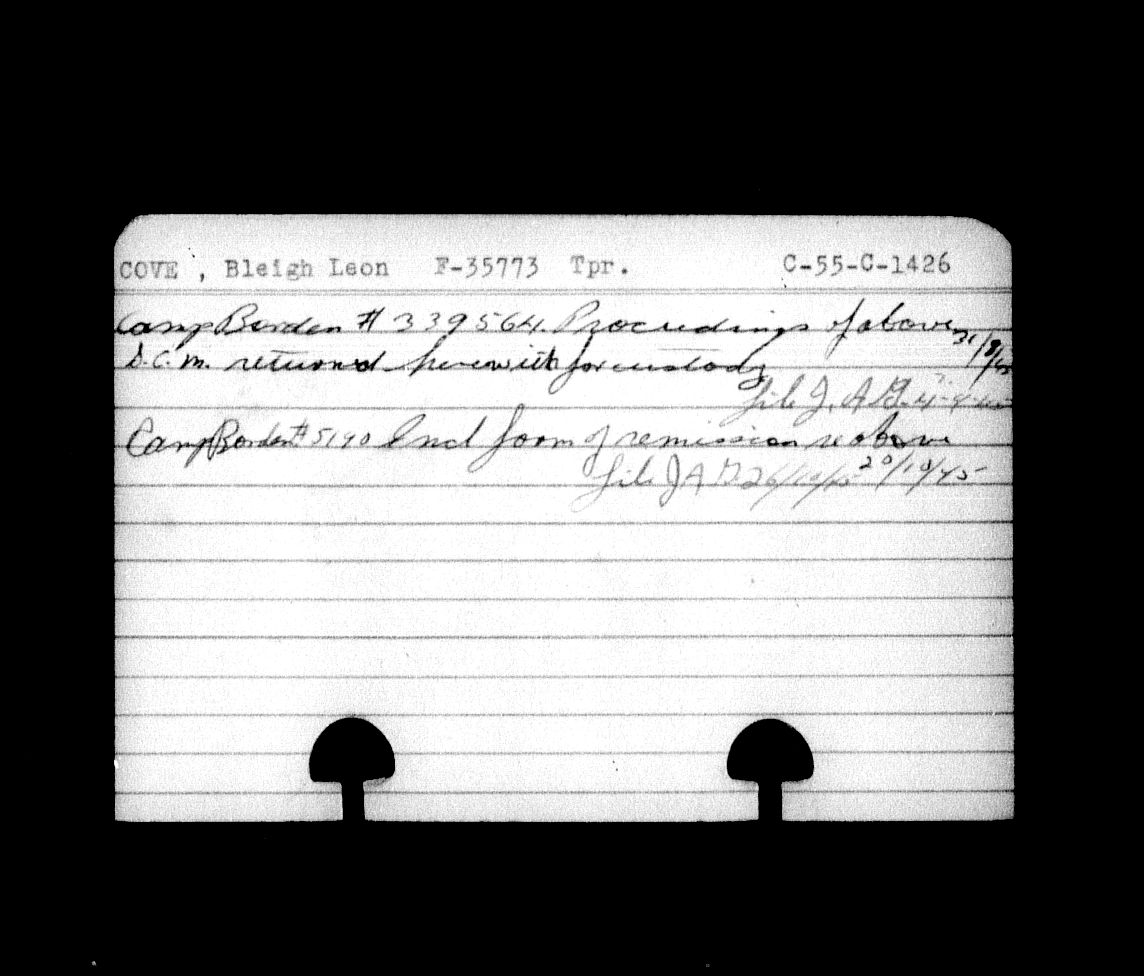 COVE , Bleigh Leon F-35773 Tpr. C-55-C-1426
Camp Borden # 339564. Proceedings of above
D.C.M. returned herewith for custody 31/8/45
file J.A.G. 4-9-45
Camp Borden # 5190 Encl form of remission re above
file JAG 26/10/45 20/10/45